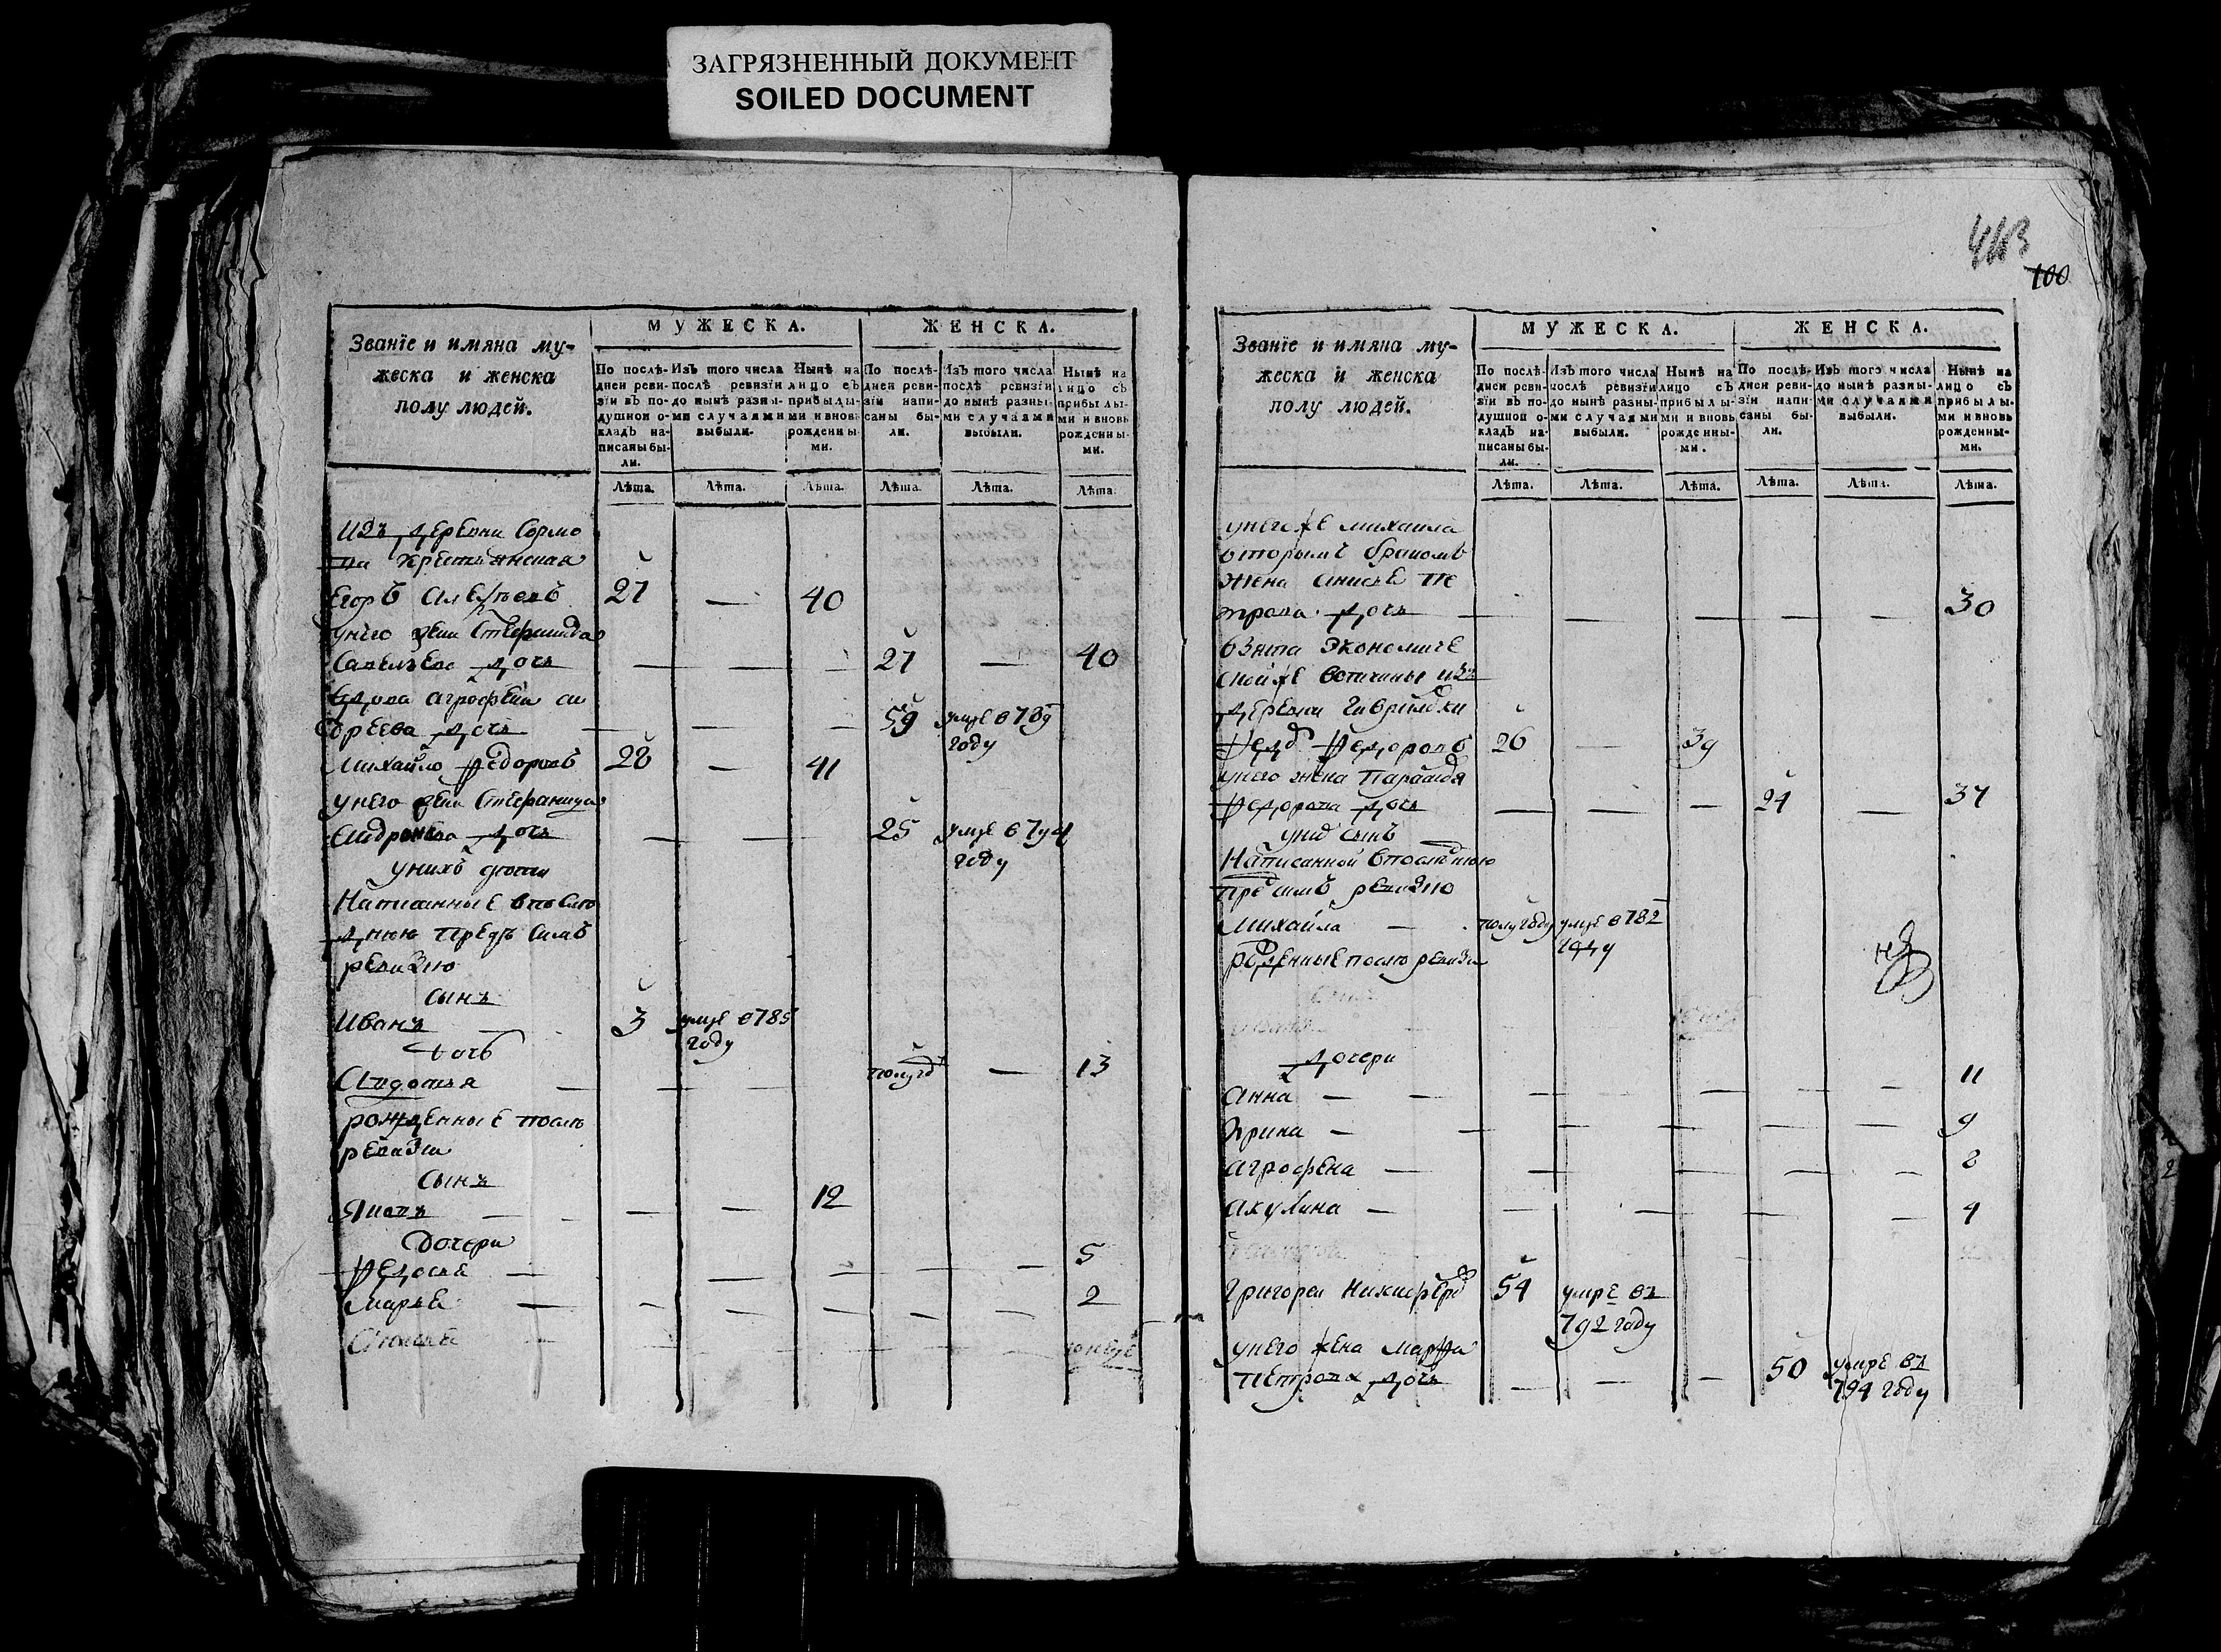 ЗАГРЯЗНЕННЫЙ ДОКУМЕНТ
SOILED DOCUMENT
Званїе и имяна му-
жеска и женска
полу людей.
МУЖЕСКА.
ЖЕНСКА.
По послѣ-
дней реви-
зїи въ по-
душной о-
кладъ на-
писаны бы-
ли.
Изъ того числа
послѣ ревизїи
до нынѣ разны-
ми случаями
выбыли.
Нынѣ на
лицо съ
прибылы-
ми и вновь
рожденны-
ми.
По послѣ-
дней реви-
зїи напи-
саны бы-
ли.
Изъ того числа
послѣ ревизїи
до нынѣ разны-
ми случаями
выбыли.
Нынѣ на
лицо съ
прибылы-
ми и вновь
рожденны-
ми.
Лѣта. Лѣта. Лѣта. Лѣта. Лѣта. Лѣта.
изъ деревни
Егоръ 27 — 40
у него
Савельева дочь — — — 27 — 40
вдова агрофена
дочь — — — 59 умре в 789
году
Михайло федоровъ 28 — 41
у него
дочь — — — 25 умре в 794
году
у нихъ дети
Написанные в после
днюю предъ симъ
ревизию
сынъ
Иванъ — 3 умре в 785
году
дочь
Авдотья — — — полугод — 13
рожденные после
ревизии
сынъ
— — — 12
Дочери
Федосья — — — — — 5
Марья — — — — — — 2
413
100
Званїе и имяна му-
жеска и женска
полу людей.
МУЖЕСКА.
ЖЕНСКА.
По послѣ-
дней реви-
зїи въ по-
душной о-
кладъ на-
писаны бы-
ли.
Изъ того числа
послѣ ревизїи
до нынѣ разны-
ми случаями
выбыли.
Нынѣ на
лицо съ
прибылы-
ми и вновь
рожденны-
ми.
По послѣ-
дней реви-
зїи напи-
саны бы-
ли.
Изъ того числа
до нынѣ разны-
ми случаями
выбыли.
Нынѣ на
лицо съ
прибылы-
ми и вновь
рожденны-
ми.
Лѣта. Лѣта. Лѣта. Лѣта. Лѣта. Лѣта.
у него же михаила
вторымъ бракомъ
жена анисья пе
трова дочь — — — — — 30
взята экономиче
ской же вотчины изъ
деревни
федоровъ 26 — 39
у него жена
федорова дочь — — — 24 — 37
у них сынъ
Написанной в последнюю
пред симъ ревизию
Михайла — полугоду умре в 782
году
рожденные после ревизии
дочери
анна — — — — — — 11
Ирина — — — — — — 9
агрофена — — — — — 8
акулина — — — — — 4
григореи Никифоров 54 умре въ
792 году
у него жена марфа
петрова дочь — — — 50 умре въ
794 году